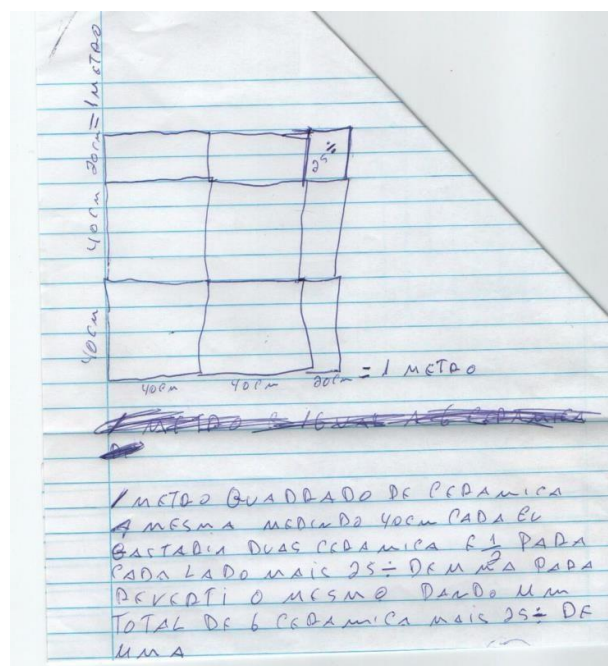 20cm = 1 METRO
40cm
40cm
25%
40cm 40cm 20cm = 1 METRO
1 METRO QUADRADO DE CERAMICA
A MESMA MEDINDO 40cm CADA EU
GASTARIA DUAS CERAMICA E 1/2 PARA
CADA LADO MAIS 25÷ DE UMA PARA
REVERTI O MESMO DANDO UM
TOTAL DE 6 CERAMICA MAIS 25÷ DE
UMA